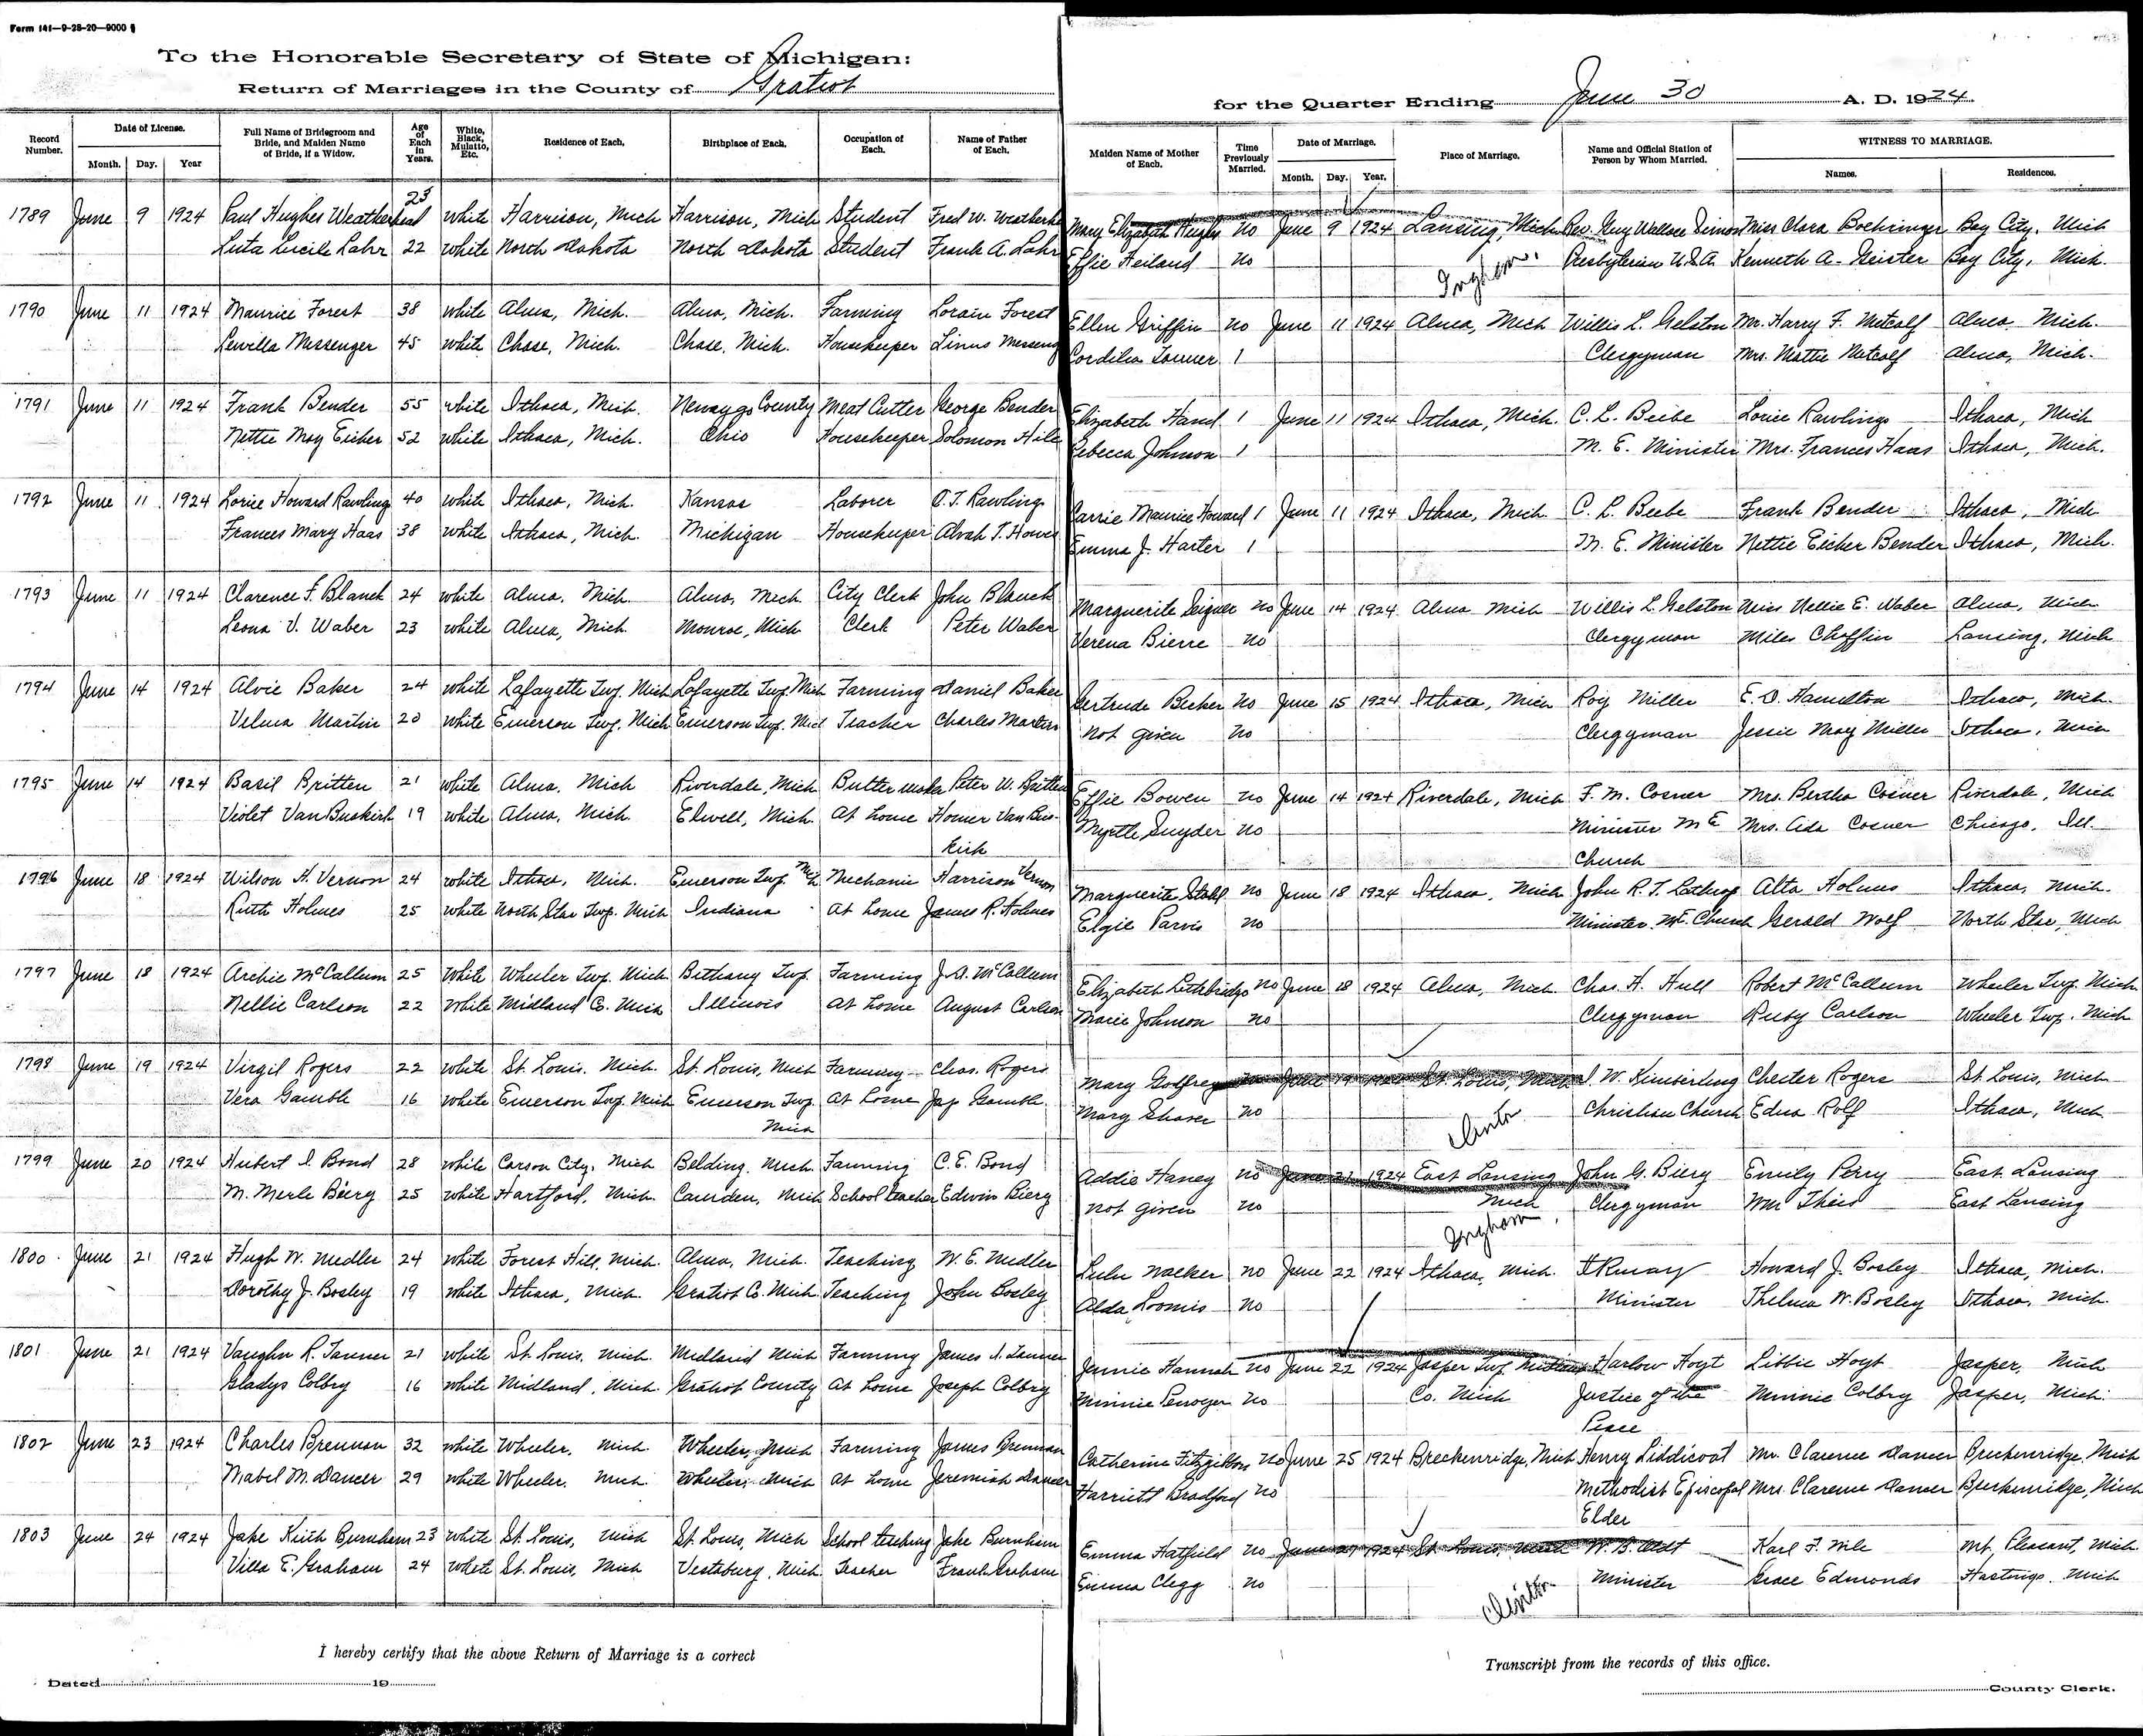 Form 141—9-28-20—9000
To the Honorable Secretary of State of Michigan:
Return of Marriages in the County of Gratiot
for the Quarter Ending June 30 A. D. 1924
Record Number. Date of License. Month. Day. Year Full Name of Bridegroom and Bride, and Maiden Name of Bride, if a Widow. Age of Each in Years. White, Black, Mulatto, Etc. Residence of Each. Birthplace of Each. Occupation of Each. Name of Father of Each. Maiden Name of Mother of Each. Time Previously Married. Date of Marriage. Month. Day. Year. Place of Marriage. Name and Official Station of Person by Whom Married. WITNESS TO MARRIAGE. Names. Residences.
1789 June 9 1924 Paul Hughes Weatherhead 23 white Harrison, Mich Harrison, Mich Student Fred W. Mary Elizabeth Hughes no June 9 1924 Lansing, Mich Rev. Guy Wallace Miss Clara Boehringer Bay City, Mich
Luta Lucile Lahr 22 white North Dakota North Dakota Student Frank A. Lahr Effie Heiland no Ingham Presbyterian U.S.A. Kenneth A. Geister Bay City, Mich.
1790 June 11 1924 Maurice Forest 38 white Alma, Mich. Alma, Mich. Farming Lorain Forest Ellen Griffin no June 11 1924 Alma, Mich Willis L. Gelston Mr. Harry F. Metcalf Alma, Mich.
Lewella Messenger 45 white Chase, Mich. Chase, Mich. Housekeeper Linus Messeng Cordilia 1 Clergyman Mrs. Mattie Metcalf Alma, Mich.
1791 June 11 1924 Frank Bender 55 white Ithaca, Mich. Newaygo County Meat Cutter George Bender Elizabeth Hand 1 June 11 1924 Ithaca, Mich. C. L. Beebe Lorice Rawlings Ithaca, Mich
Nettie May Eicher 52 white Ithaca, Mich. Ohio Housekeeper Solomon Rebecca Johnson 1 M. E. Minister Mrs. Frances Haas Ithaca, Mich.
1792 June 11 1924 Lorice Howard Rawling 40 white Ithaca, Mich. Kansas Laborer O.T. Rawling Carrie Maurice Howard 1 June 11 1924 Ithaca, Mich C. L. Beebe Frank Bender Ithaca, Mich
Frances Mary Haas 38 white Ithaca, Mich. Michigan Housekeeper Alvah T. Emma J. Harter 1 M. E. Minister Nettie Eicher Bender Ithaca, Mich.
1793 June 11 1924 Clarence F. Blanck 24 white Alma, Mich Alma, Mich City Clerk John Blanck Marguerite no June 14 1924 Alma Mich Willis L. Gelston Miss Nellie E. Waber Alma, Mich
Leona V. Waber 23 white Alma, Mich. Monroe, Mich Clerk Peter Waber Verena Bierre no Clergyman Miles Chaffin Lansing, Mich
1794 June 14 1924 Alvie Baker 24 white Lafayette Twp. Mich Lafayette Twp. Mich Farming Daniel Baker Gertrude Becker no June 15 1924 Ithaca, Mich Roy Miller E. D. Hamilton Ithaca, Mich.
Velma Martin 20 white Emerson Twp. Mich Emerson Twp. Mich Teacher Charles Martin not given no Clergyman Jessie May Miller Ithaca, Mich
1795 June 14 1924 Basil Britten 21 white Alma, Mich Riverdale, Mich Butter maker Peter W. Britten Effie Bowen no June 14 1924 Riverdale, Mich F. M. Cosner Mrs. Bertha Cosner Riverdale, Mich
Violet VanBuskirk 19 white Alma, Mich. Elwell, Mich At home Homer Van Bus- Myrtle Snyder no Minister M E Mrs. Ada Cosner Chicago, Ill.
kirk Church
1796 June 18 1924 Wilson H. Vernon 24 white Ithaca, Mich. Emerson Twp. Mich Mechanic Harrison Vernon Marguerite Stahl no June 18 1924 Ithaca, Mich John R. T. Lathrop Alta Holmes Ithaca, Mich.
Ruth Holmes 25 white North Star Twp. Mich Indiana At home James R. Holmes Elgie Parvis no Minister M.E. Church Gerald Wolf North Star, Mich
1797 June 18 1924 Archie McCallum 25 White Wheeler Twp. Mich Bethany Twp. Farming J. D. McCallum Elizabeth Lethbridge no June 18 1924 Alma, Mich. Chas. H. Hull Robert McCallum Wheeler Twp. Mich
Nellie Carlson 22 White Midland Co. Mich Illinois At home August Carlson Marie Johnson no Clergyman Ruby Carlson Wheeler Twp. Mich
1798 June 19 1924 Virgil Rogers 22 white St. Louis. Mich. St. Louis, Mich Farming Chas. Rogers Mary Godfrey no June 19 1924 St. Louis, Mich W. Kimberling Chester Rogers St. Louis, Mich
Vera Gamble 16 white Emerson Twp. Mich Emerson Twp. At home Jay Gamble Mary Shaver no Clinton Christian Church Edna Rolf Ithaca, Mich
Mich
1799 June 20 1924 Hubert D. Bond 28 white Carson City, Mich Belding, Mich Farming C. E. Bond Addie Haney no June 21 1924 East Lansing John G. Biery Emily Perry East Lansing
M. Merle Biery 25 white Hartford, Mich. Camden, Mich School teacher Edwin Biery not given no Mich Ingham Clergyman Wm Theis East Lansing
1800 June 21 1924 Hugh W. Medler 24 white Forest Hill, Mich. Alma, Mich. Teaching W. E. Medler Lulu Walker no June 22 1924 Ithaca, Mich. Howard J. Bosley Ithaca, Mich.
Dorothy J. Bosley 19 white Ithaca, Mich. Gratiot Co. Mich Teaching John Bosley Alda Loomis no Minister Thelma W. Bosley Ithaca, Mich.
1801 June 21 1924 Vaughn R. Tanner 21 white St. Louis, Mich. Midland Mich Farming James A. Tanner Jennie Hannah no June 22 1924 Jasper Twp. Midland Harlow Hoyt Libbie Hoyt Jasper, Mich
Gladys Colbry 16 white Midland, Mich. Gratiot County At home Joseph Colbry Minnie Penoyer no Co. Mich Justice of the Minnie Colbry Jasper, Mich.
Peace
1802 June 23 1924 Charles Brennan 32 white Wheeler, Mich. Wheeler, Mich Farming James Brennan Catherine Fitzgibbon no June 25 1924 Breckenridge, Mich Henry Liddicoat Mr. Clarence Dancer Breckenridge, Mich
Mabel M. Dancer 29 white Wheeler, Mich. Wheeler, Mich At home Jeremiah Dancer Harriett Bradford no Methodist Episcopal Mrs. Clarence Dancer Breckenridge, Mich
Elder
1803 June 24 1924 Jake Keith Burnham 23 white St. Louis, Mich St. Louis, Mich School teaching Jake Burnham Emma Hatfield no June 1924 St. Louis, Mich W. B. Karl F. Mt. Pleasant, Mich
Villa E. Graham 24 white St. Louis, Mich Vestaburg, Mich. Teacher Frank Graham Emma Clegg no Clinton Minister Grace Edmonds Hastings, Mich
I hereby certify that the above Return of Marriage is a correct
Transcript from the records of this office.
Dated 19
County Clerk.